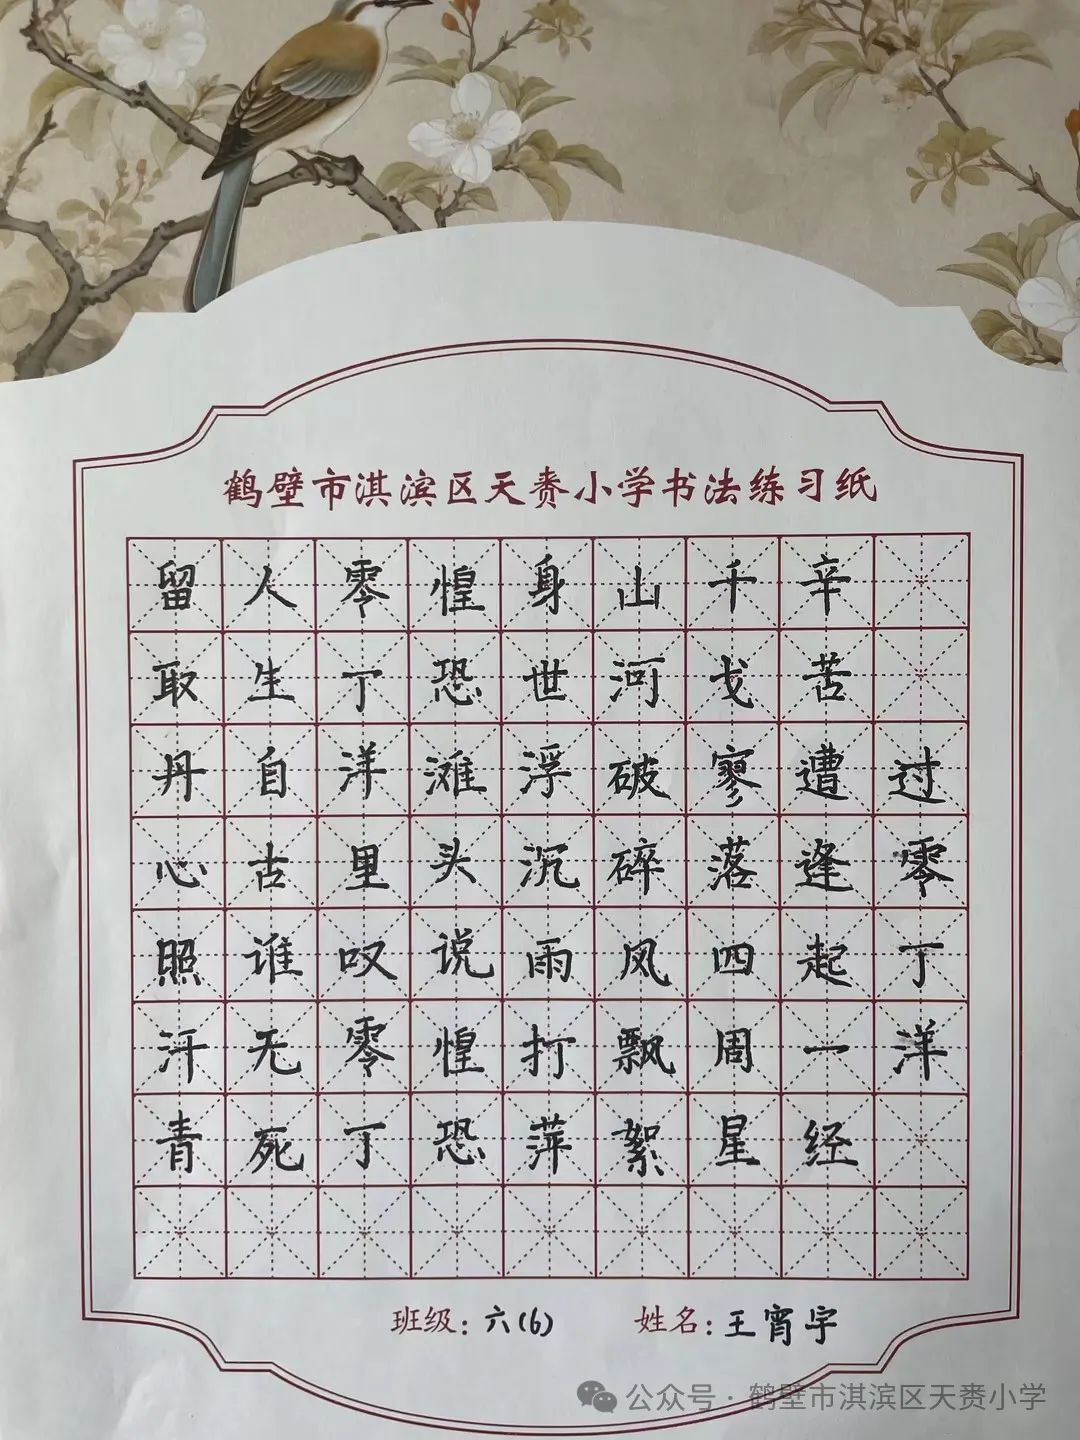 鹤壁市淇滨区天赉小学书法练习纸
过零丁洋
辛苦遭逢起一经
千戈寥落四周星
山河破碎风飘絮
身世浮沉雨打萍
惶恐滩头说惶恐
零丁洋里叹零丁
人生自古谁无死
留取丹心照汗青
班级:六(6) 姓名:王宵宇
公众号·鹤壁市淇滨区天赉小学